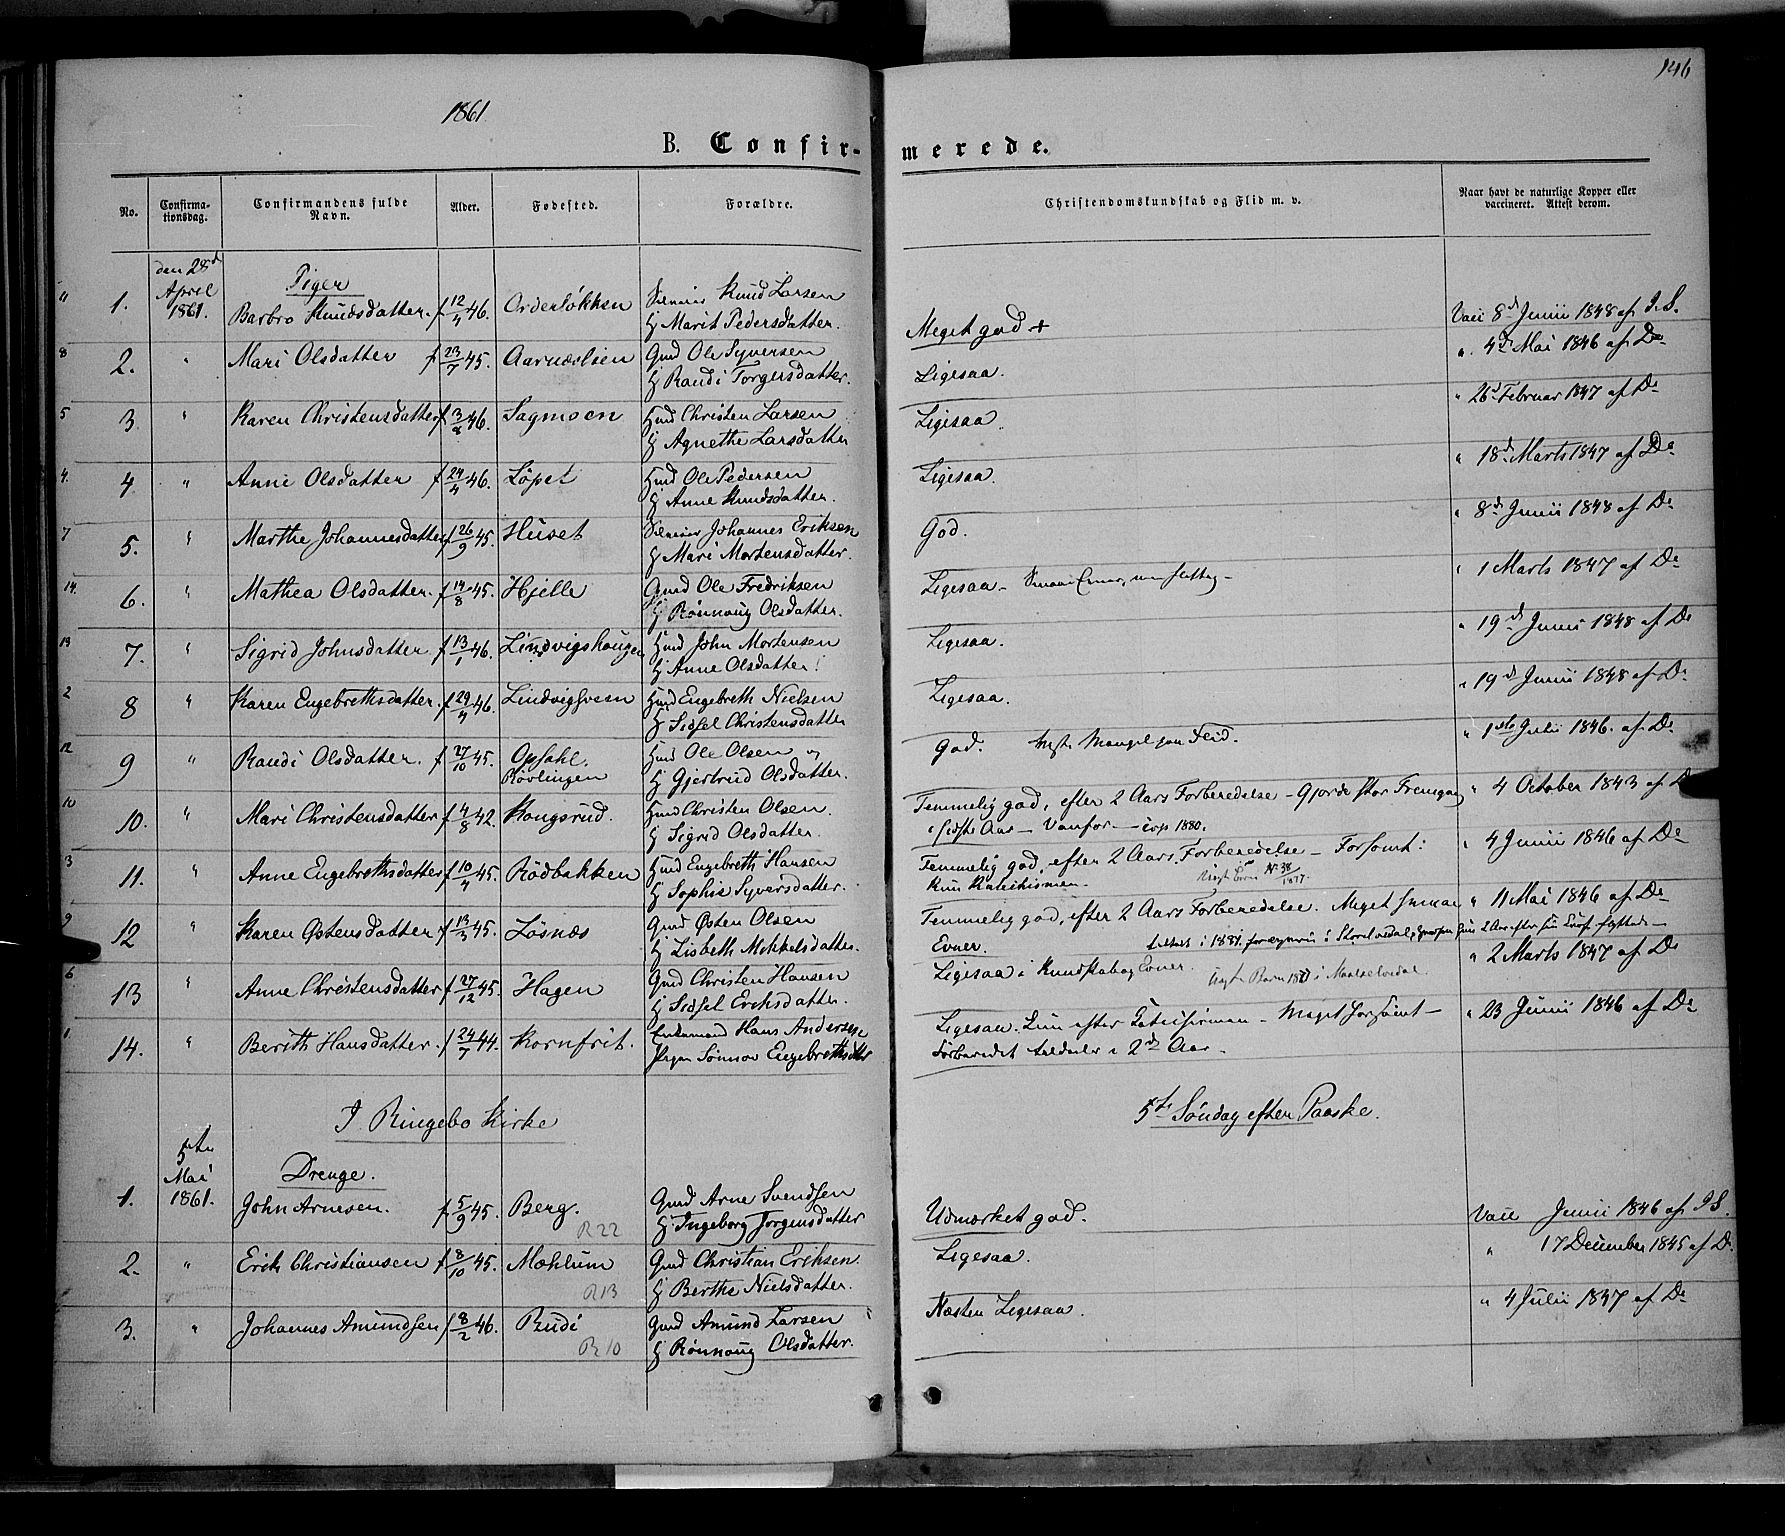 146
1861
B. Confir-merede.
No. Confirma-tionsdag. Confirmandens fulde Navn. Alder. Fødested. Forældre. Christendomskundskab og Flid m. v. Naar havt de naturlige Kopper eller vaccineret. Attest derom.
den 28d April 1861.
Piger
11 1. Barbro Knudsdatter. f 12/4 46. Orderløkken Knud Larsen
H Marit Pedersdatter. Meget god + Vacc 8d Junii 1848 af I. S.
8 2. " Mari Olsdatter f 23/7 45. Aarnæslien Gmd Ole Syversen
H Randi Torgersdatter. Ligesaa. " 4d Mai 1846 af Do
5 3. " Karen Christensdatter f 3/8 46. Sagmoen Hmd Christen Larsen
H Agnethe Larsdatter Ligesaa. " 26d Februar 1847 af Do
4. 4 " Anne Olsdatter f 24/4 46. Løpet Hmd Ole Pedersen
H Anne Knudsdatter. Ligesaa. " 18d Marts 1847 af Do
7 5. " Marthe Johannesdatter f 26/9 45. Huset Johannes Eriksen
H Mari Mortensdatter. God. " 8d Junii 1848 af Do
14. 6. " Mathea Olsdatter. f 14/8 45. Hjelle Gmd Ole Fredriksen
H Rønnoug Olsdatter. Ligesaa - " 1 Marts 1847 af Do
13 7. " Sigrid Johnsdatter f 13/1 46. Lindvigshaugen Hmd John Mortensen
H Anne Olsdatter. Ligesaa. " 19d Junii 1848 af Do
2 8 " Karen Engebrethsdatter. f 29/4 46. Lindvigsveen Hmd Engebreth Nielsen
H Sidsel Christensdatter Ligesaa. " 19d Junii 1848 af Do
12 9 " Randi Olsdatter. f 27/10 45. Opsahl. Hmd Ole Olsen og
Kløvlingen H Gjertrud Olsdatter. God. Mangel paa Flid. " 1ste Julii 1846. af Do
10 10. " Mari Christensdatter f 4/8 42. Kongsrud. Hmd Christen Olsen.
H Sigrid Olsdatter. Temmelig god, efter 2 Aars Forberedelse - Gjorde stor Fremgang
i sidste Aar - Vanfør - 1880. " 4 October 1843 af Do
3 11. " Anne Engebrethsdatter f 10/4 45. Rødbakken Hmd Engebreth Hansen
H Sophie Syversdatter. Temmelig god, efter 2 Aars Forberedelse - Forsømt:
Kun Katekismen. No 38/1877. " 4 Junii 1846 af Do
9 12 " Karen Østensdatter f 13/3 45. Løsnæs Gmd Østen Olsen
H Lisbeth Mikkelsdatter. Temmelig god, efter 2 Aars Forberedelse. Meget smaa
Evner. " 11 Mai 1846 af Do
6 13 " Anne Christensdatter f 27/12 45. Hagen Gmd Christen Hansen
H Sidsel Eriksdatter. Ligesaa i Kundskab og Evner. " 2 Marts 1847 af Do
1. 14. " Berith Hansdatter. f 24/7 44. Kornfrit. Enkemand Hans Andersen
Pigen Sønnov Engebrethsdtr Ligesaa. Kun efter Katechismen - Meget forsømt -
Forberedet tildeels i 2d Aar. " 23 Junii 1846 af Do
I Ringebo Kirke 5te Søndag efter Paaske.
5te Mai 1861.
Drenge.
1. John Arnesen. f 5/9 45. Berg. R22 Gmd Arne Svendsen
H. Ingeborg Jorgensdatter Udmærket god. Vacc Junii 1846 af I S.
2. " Erik Christiansen f 8/10 45. Mæhlum R13 Gmd Christian Eriksen.
H Berthe Nielsdatter. Ligesaa. " 17 December 1845 af D.
3. " Johannes Amundsen f 8/2 46. Rudi R10 Gmd Amund Larsen
H Rønnoug Olsdatter. Næsten Ligesaa. " 4 Julii 1847 af Do